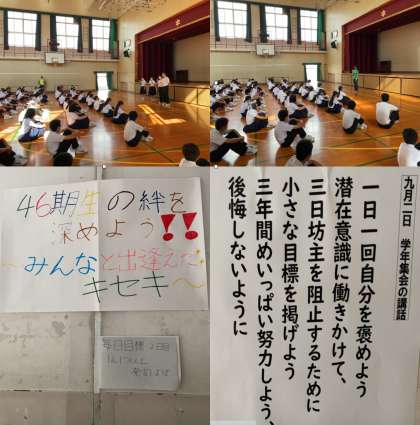 46期生の絆を
深めよう!!
～みんなと出逢えた
キセキ～
毎日目標 2日目
九月二日 学年集会の講話
一日一回自分を褒めよう
潜在意識に働きかけて、
三日坊主を阻止するために
小さな目標を掲げよう
三年間めいっぱい努力しよう、
後悔しないように